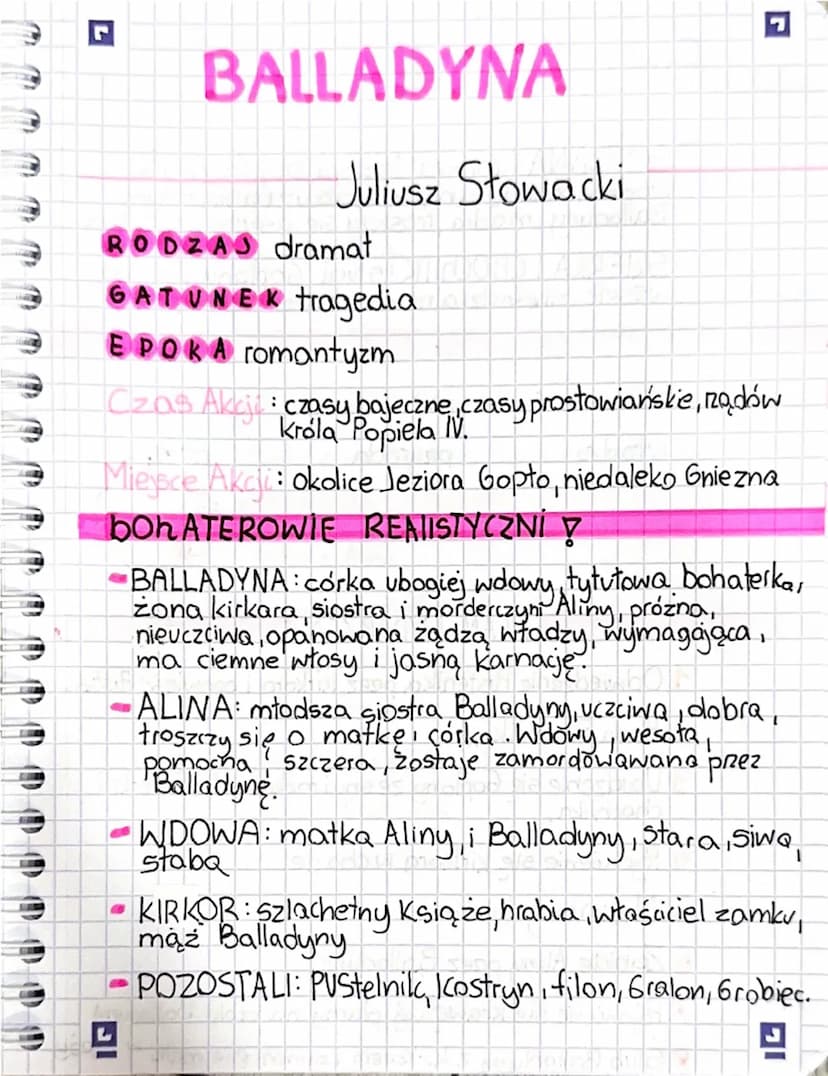 BALLADYNA
Juliusz Słowacki
RODZAJ dramat
GATUNEK tragedia
EPOKA romantyzm
Czas Akcji: czasy bajeczne, czasy prosłowiańskie, rządów
króla Popiela IV.
Miejsce Akcji: okolice Jeziora Gopło, niedaleko Gniezna
bohATEROWIE REALISTYCZNi!
- BALLADYNA: córka ubogiej wdowy, tytułowa bohaterka,
żona kirkara, siostra i morderczyni Aliny, próżna,
nieuczciwa, opanowana żądzą władzy, wymagająca,
ma ciemne włosy i jasną karnację.
- ALINA: młodsza siostra Balladyny, uczciwa, dobra,
troszczy się o matkę, córka Wdowy, wesoła,
pomocna i szczera, zostaje zamordowawana przez
Balladynę.
- WDOWA: matka Aliny i Balladyny, stara, siwa,
słaba
- KIRKOR: szlachetny Książe, hrabia, właściciel zamku,
mąż Balladyny
- POZOSTALI: PUStelnik, Kostryn, filon, Gralon, Grabiec.